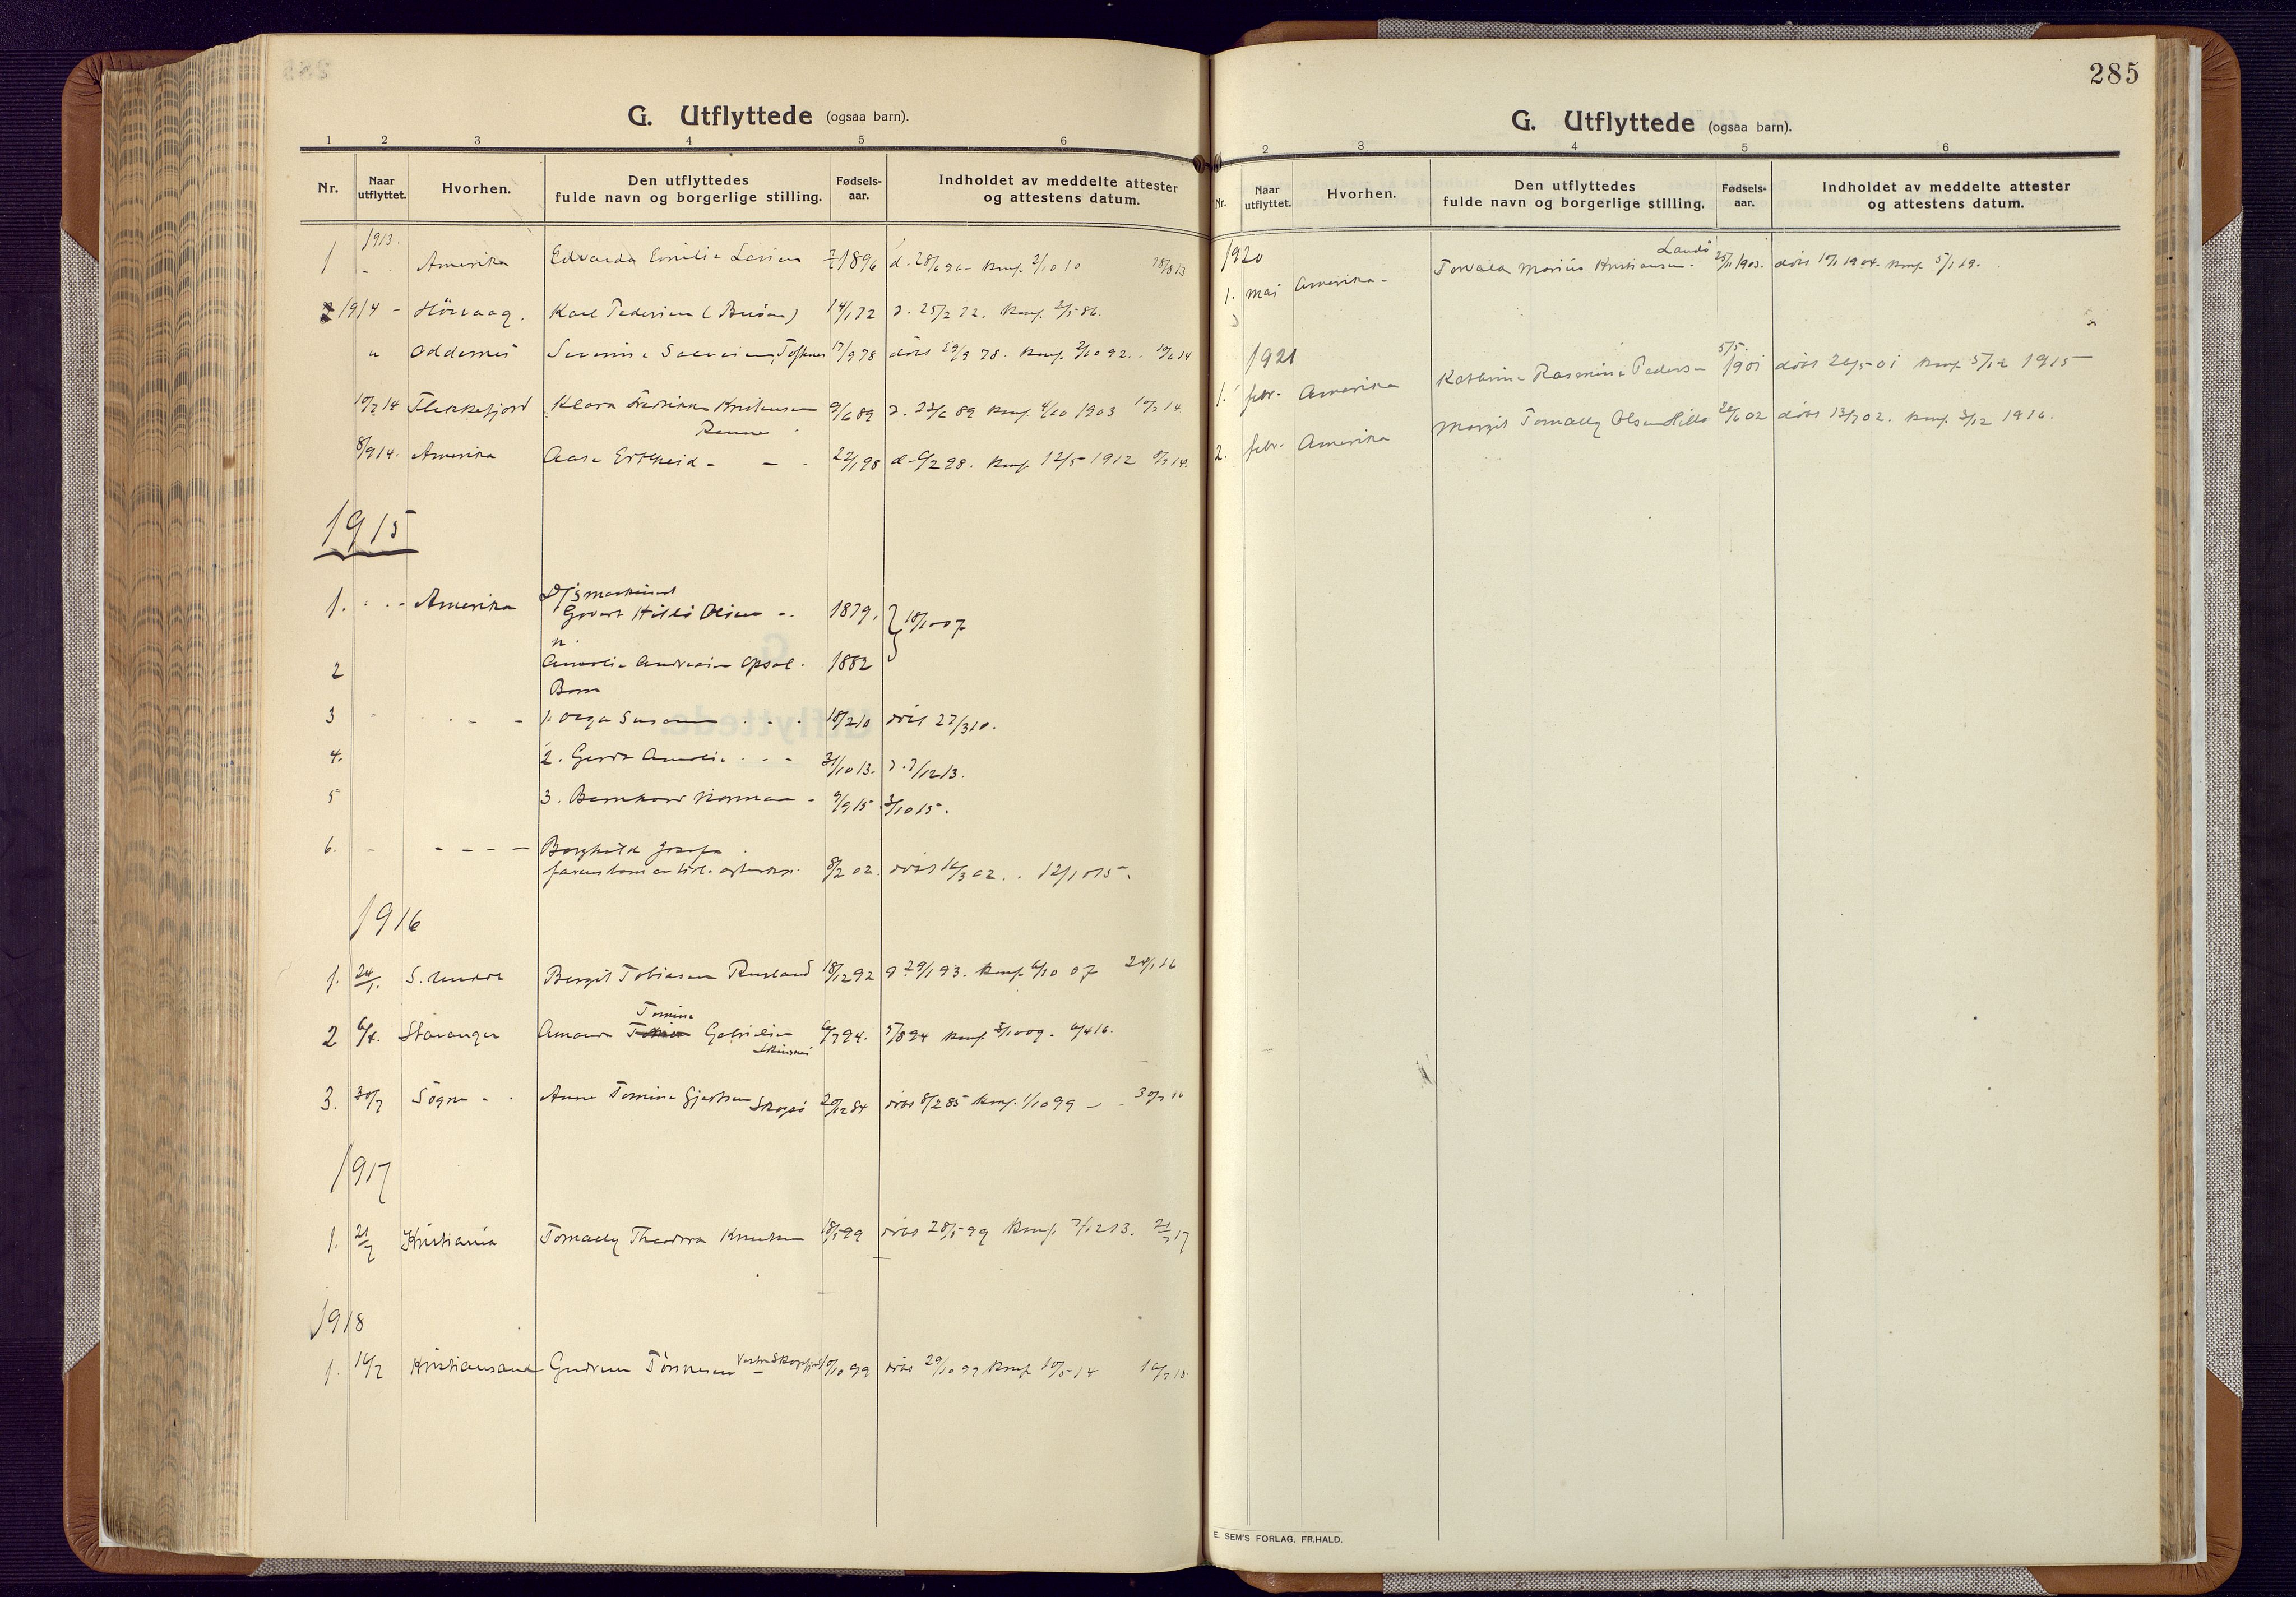 G. Utflyttede (ogsaa barn).
1 2 3 4 5 6
Nr. Naar utflyttet. Hvorhen. Den utflyttedes fulde navn og borgerlige stilling. Fødsels-aar. Indholdet av meddelte attester og attestens datum.
1913.
1 - Amerika Edvarda Emilie Larsen 7/6 1896 d. 28/6 96 - konf. 2/10 10 18/8 13
2 1914 - Hövaag. Karl Pedersen 14/1 72 d. 25/2 72. konf. 2/5 86.
" Oddernes Severine 17/9 78 döbt 29/9 78. konf. 2/10 92. 19/6 14
10/7 14 Flekkefjord Klara Fredrikke Kristensen 9/6 89 d. 23/6 89 konf. 4/10 1903 10/7 14
8/9 14. Amerika Aase Ertzeid - - 22/1 98 d. 6/2 98. konf. 12/5 1912 8/9 14.
1915
1. Amerika D/S maskinist
Govert Hillö Olsen 1879. 18/10 07
2 Amalie Andrea Opsal. 1882
Barn
3 - - - 1. Olga Susanne 18/2 10 döbt 27/3 10.
4. 2. Gerda Amalie 31/10 13. d. 7/12 13.
5 3. Bernhard Norman - 9/9 15 3/10 15.
6. - - - - - Borghild Josefa
8/2 02. döbt 16/3 02. 12/10 15.
1916
1. 24/1. S. Undal Bergit Tobiasen 18/12 92 d 29/1 93. konf. 6/10 07 24/1 16
Tomine
2 6/4. Stavanger Amanda Gabrielsen 6/7 94. 5/8 94 konf. 3/10 09. 6/4 16.
3. 30/7 Sögne - Anna Tomine Gjertsen Skogsö 20/12 84 döbt 8/2 85 konf. 1/10 99 - 30/7 16
1917
1. 21/7 Kristiania Tomally Theodora Knutsen 18/5 99 döbt 28/5 99 konf. 7/12 13. 21/7 17
1918
1. 16/7 Kristiansand Gudrun Tönnesen 10/10 99 döbt 29/10 99 konf. 10/5 14 16/7 18.
285
G. Utflyttede (ogsaa barn).
2 3 4 5 6
Nr. Naar utflyttet. Hvorhen. Den utflyttedes fulde navn og borgerlige stilling. Fødsels-aar. Indholdet av meddelte attester og attestens datum.
1920
1. mai Amerika - Torvald Marius Kristiansen. Landö 25/11 1903. döbt 10/1 1904. konf. 5/1 19.
1921
1. febr. Amerika Kathrine Rasmine Peders- 5/5. 1901 döbt 26/5 01 konf. 5/12 1915
2. febr. Amerika Margit Tomally Olsen Hillö 24/6 02 döbt 13/7 02. konf. 3/12 1916.
E. SEM'S FORLAG, FR.HALD.